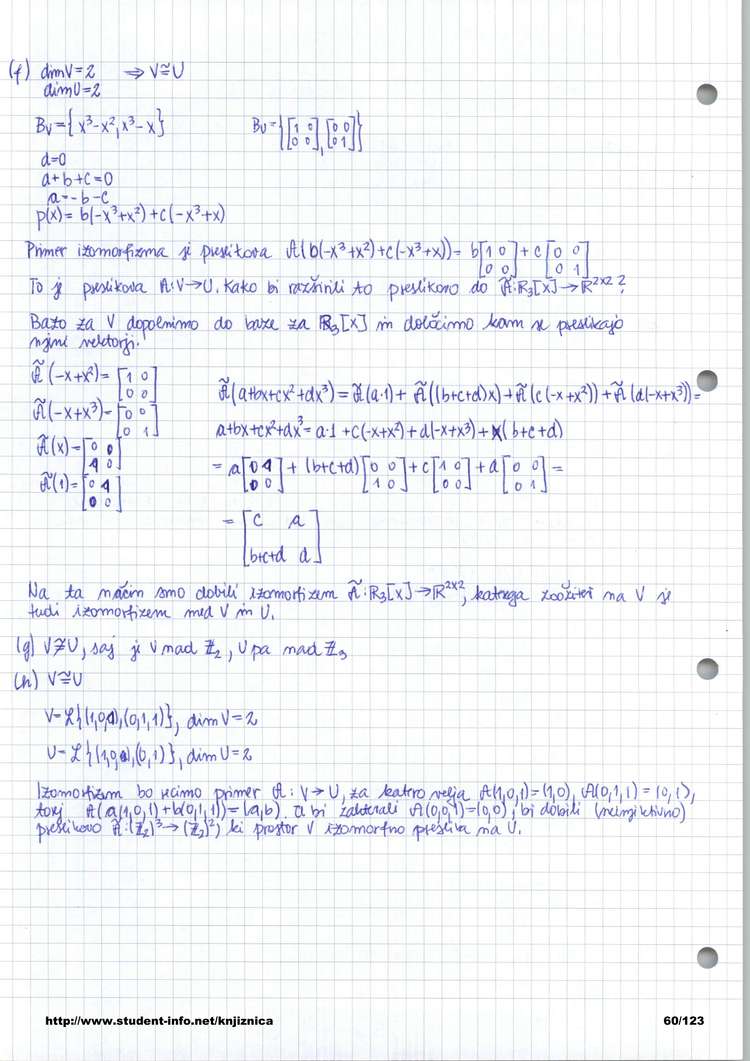 (f) dimV=2 ⇒ V≅U
dimU=2
BV={x³-x², x³-x} BU={[1 0; 0 0], [0 0; 0 1]}
d=0
a+b+c=0
a=-b-c
p(x)= b(-x³+x²)+c(-x³+x)
Primer izomorfizma je preslikava A(b(-x³+x²)+c(-x³+x))= b[1 0; 0 0]+c[0 0; 0 1]
To je preslikava A:V→U. Kako bi razširili to preslikavo do Ã:R₃[x]→R²ˣ²?
Bazo za V dopolnimo do baze za R₃[x] in določimo kam se preslikajo
njeni vektorji.
Ã(-x+x²)=[1 0; 0 0]
Ã(-x+x³)=[0 0; 0 1]
Ã(x)=[0 0; 1 0]
Ã(1)=[0 1; 0 0]
Ã(a+bx+cx²+dx³)=Ã(a·1)+Ã((b+c+d)x)+Ã(c(-x+x²))+Ã(d(-x+x³))=
a+bx+cx²+dx³=a·1+c(-x+x²)+d(-x+x³)+x(b+c+d)
=a[0 1; 0 0]+(b+c+d)[0 0; 1 0]+c[1 0; 0 0]+d[0 0; 0 1]=
=[c a; b+c+d d]
Na ta način smo dobili izomorfizem Ã:R₃[x]→R²ˣ², katerega zožitev na V je
tudi izomorfizem med V in U.
(g) V≇U, saj je V nad Z₂, U pa nad Z₃
(h) V≅U
V=L{(1,0,1),(0,1,1)}, dimV=2
U=L{(1,0),(0,1)}, dimU=2
Izomorfizem bo recimo primer A:V→U, za katero velja A(1,0,1)=(1,0), A(0,1,1)=(0,1),
torej A(a(1,0,1)+b(0,1,1))=(a,b). Če bi zahtevali A(0,0,1)=(0,0), bi dobili (neinjektivno)
preslikavo Ã:(Z₂)³→(Z₂)², ki prostor V izomorfno preslika na U.
http://www.student-info.net/knjiznica 60/123